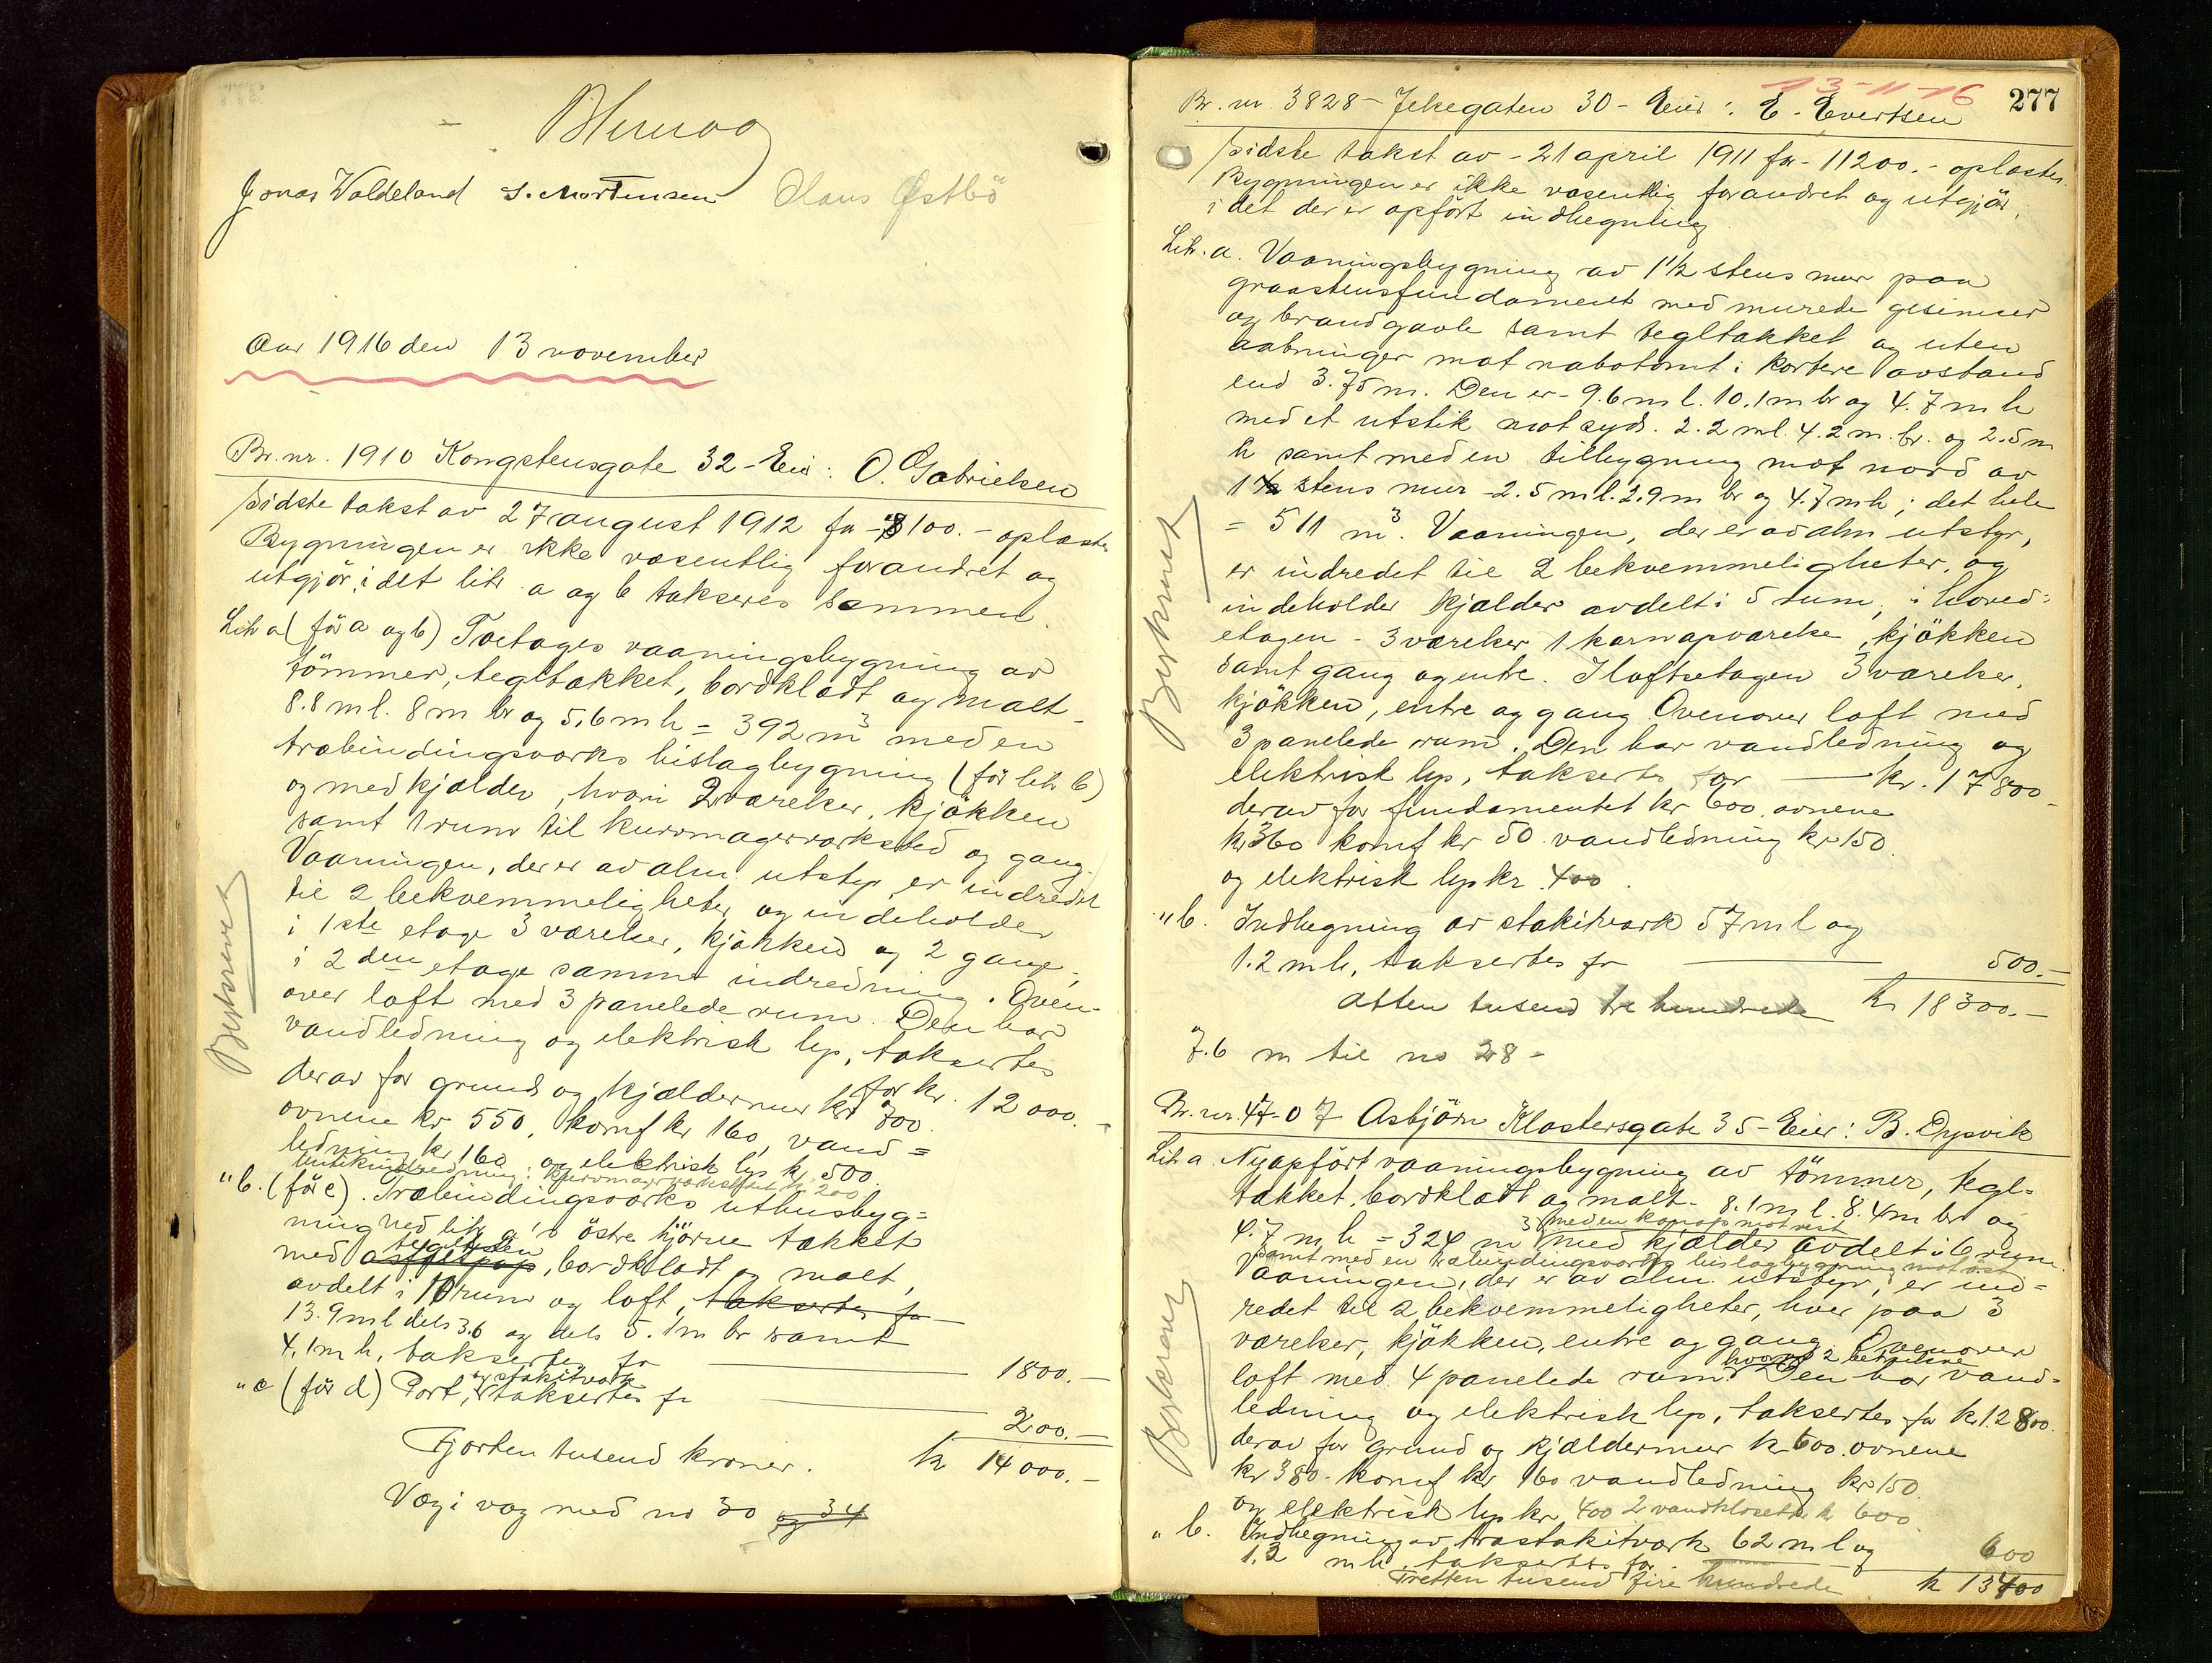 Jonas Waldeland S. Mortensen Claus Østbö
Aar 1916 den 13 november
Br. nr. 1910 Kongstensgate 32 - Eier: O. Gabrielsen
Sidste takst av 27 august 1912 for - 8100. - oplæstes
Bygningen er ikke væsentlig forandret og
utgjör, idet litr a og b takseres sammen.
Litr a (för a og b) Toetages vaaningsbygning av
tömmer, tegltækket, bordklædt og malt -
8.8 m l. 8 m br og 5.6 m h = 392 m3 med en
træbindingsverks bislagbygning (för litr b)
og med kjælder, hvori 2 værelser, kjökken
samt 1 rum til kurvmagerverksted og gang.
Vaaningen, der er av alm. utstyr er indredet
til 2 bekvemmeligheter og indeholder
i 1ste etage 3 værelser, kjökken og 2 gange,
i 2den etage samme indredning. Oven-
over loft med 3 panelede rum. Den har
vandledning og elektrisk lys, taksertes
for kr. 12000.-
derav for grund og kjældermur kr 700.
ovnene kr 550, komf kr 160, vand =
ledning kr 160 og elektrisk lys kr 500.
Butikindredning: kurvmagerverkstedet kr 200
" b. (för c). Træbindingsverks uthusbyg=
ning ved litr a's östre hjörne tækket
med asfaltpap teglsten, bordklædt og malt,
avdelt i 10 rum og loft, taksertes for
13.9 m l dels 3.6 og dels 5.1 m br samt
4.1 m h, taksertes for 1800.-
" c (för d) Port, og stakitverk taksertes for
200.-
Fjorten tusend kroner. kr 14000.-
Væg i væg med no 30 og 34
Bortsenet
277
13-11-16
Br. nr. 3828 - Jekegaten 30 - Eier: E. Evertsen
Sidste takst av - 21 april 1911 for - 11200.- oplæstes.
Bygningen er ikke væsentlig forandret og utgjör,
i det der er opfört indhegning
Litr. a. Vaaningsbygning av 1 1/2 stens mur paa
graastensfundament med murede gesimser
og brandgavle samt tegltækket og uten
aabninger mot nabotomt i kortere avstand
end 3.75 m. Den er - 9.6 m l. 10.1 m br og 4.7 m h
med et utstik mot syd. 2.2 m l. 4.2 m. br. og 2.5 m
h samt med en tilbygning mot nord av
1 1/2 stens mur - 2.5 m l. 2.9 m br og 4.7 m h; det hele
= 511 m3. Vaaningen, der er av alm utstyr,
er indredet til 2 bekvemmeligheter, og
indeholder kjælder avdelt i 5 rum, i hoved=
etagen - 3 værelser, 1 karnapværelse, kjökken
samt gang og entre. I loftsetagen 3 værelser,
kjökken, entre og gang. Ovenover loft med
3 panelede rum. Den har vandledning og
elektrisk lys, taksertes for kr. 17800.-
derav for fundamentet kr 600, ovnene
kr 360 komf kr 50 vandledning kr 150
og elektrisk lys kr. 400.
" b. Indhegning av stakitverk 57 m l og
1.2 m h, taksertes for 500.-
Atten tusend tre hundrede kr 18300.-
7.6 m til no 28 -
Br. nr. 47-07 Asbjörn Klostersgate 35 - Eier: B. Dysvik
Litr a. Nyopfört vaaningsbygning av tömmer, tegl=
tækket, bordklædt og malt - 8.1 m l. 8.4 m br og
4.7 m h = 324 m3 med en karnap mot vest med kjælder avdelt i 6 rum.
samt med en træbindingsverks bislagbygning mot öst
Vaaningen, der er av alm. utstyr, er ind=
redet til 2 bekvemmeligheter, hver paa 3
værelser, kjökken, entre og gang. Ovenover
loft med 4 panelede rum. Den har vand=
ledning og elektrisk lys, taksertes for kr 12800.
derav for grund og kjældermur kr 600. ovnene
kr 380 - komf kr 160 vandledning kr 150
og elektrisk lys kr 400 2 vandklosetter kr 600.
" b. Indhegning av træstakitverk 62 m l og
1.2 m h, taksertes for 600
Tretten tusend fire hundrede kr 13400